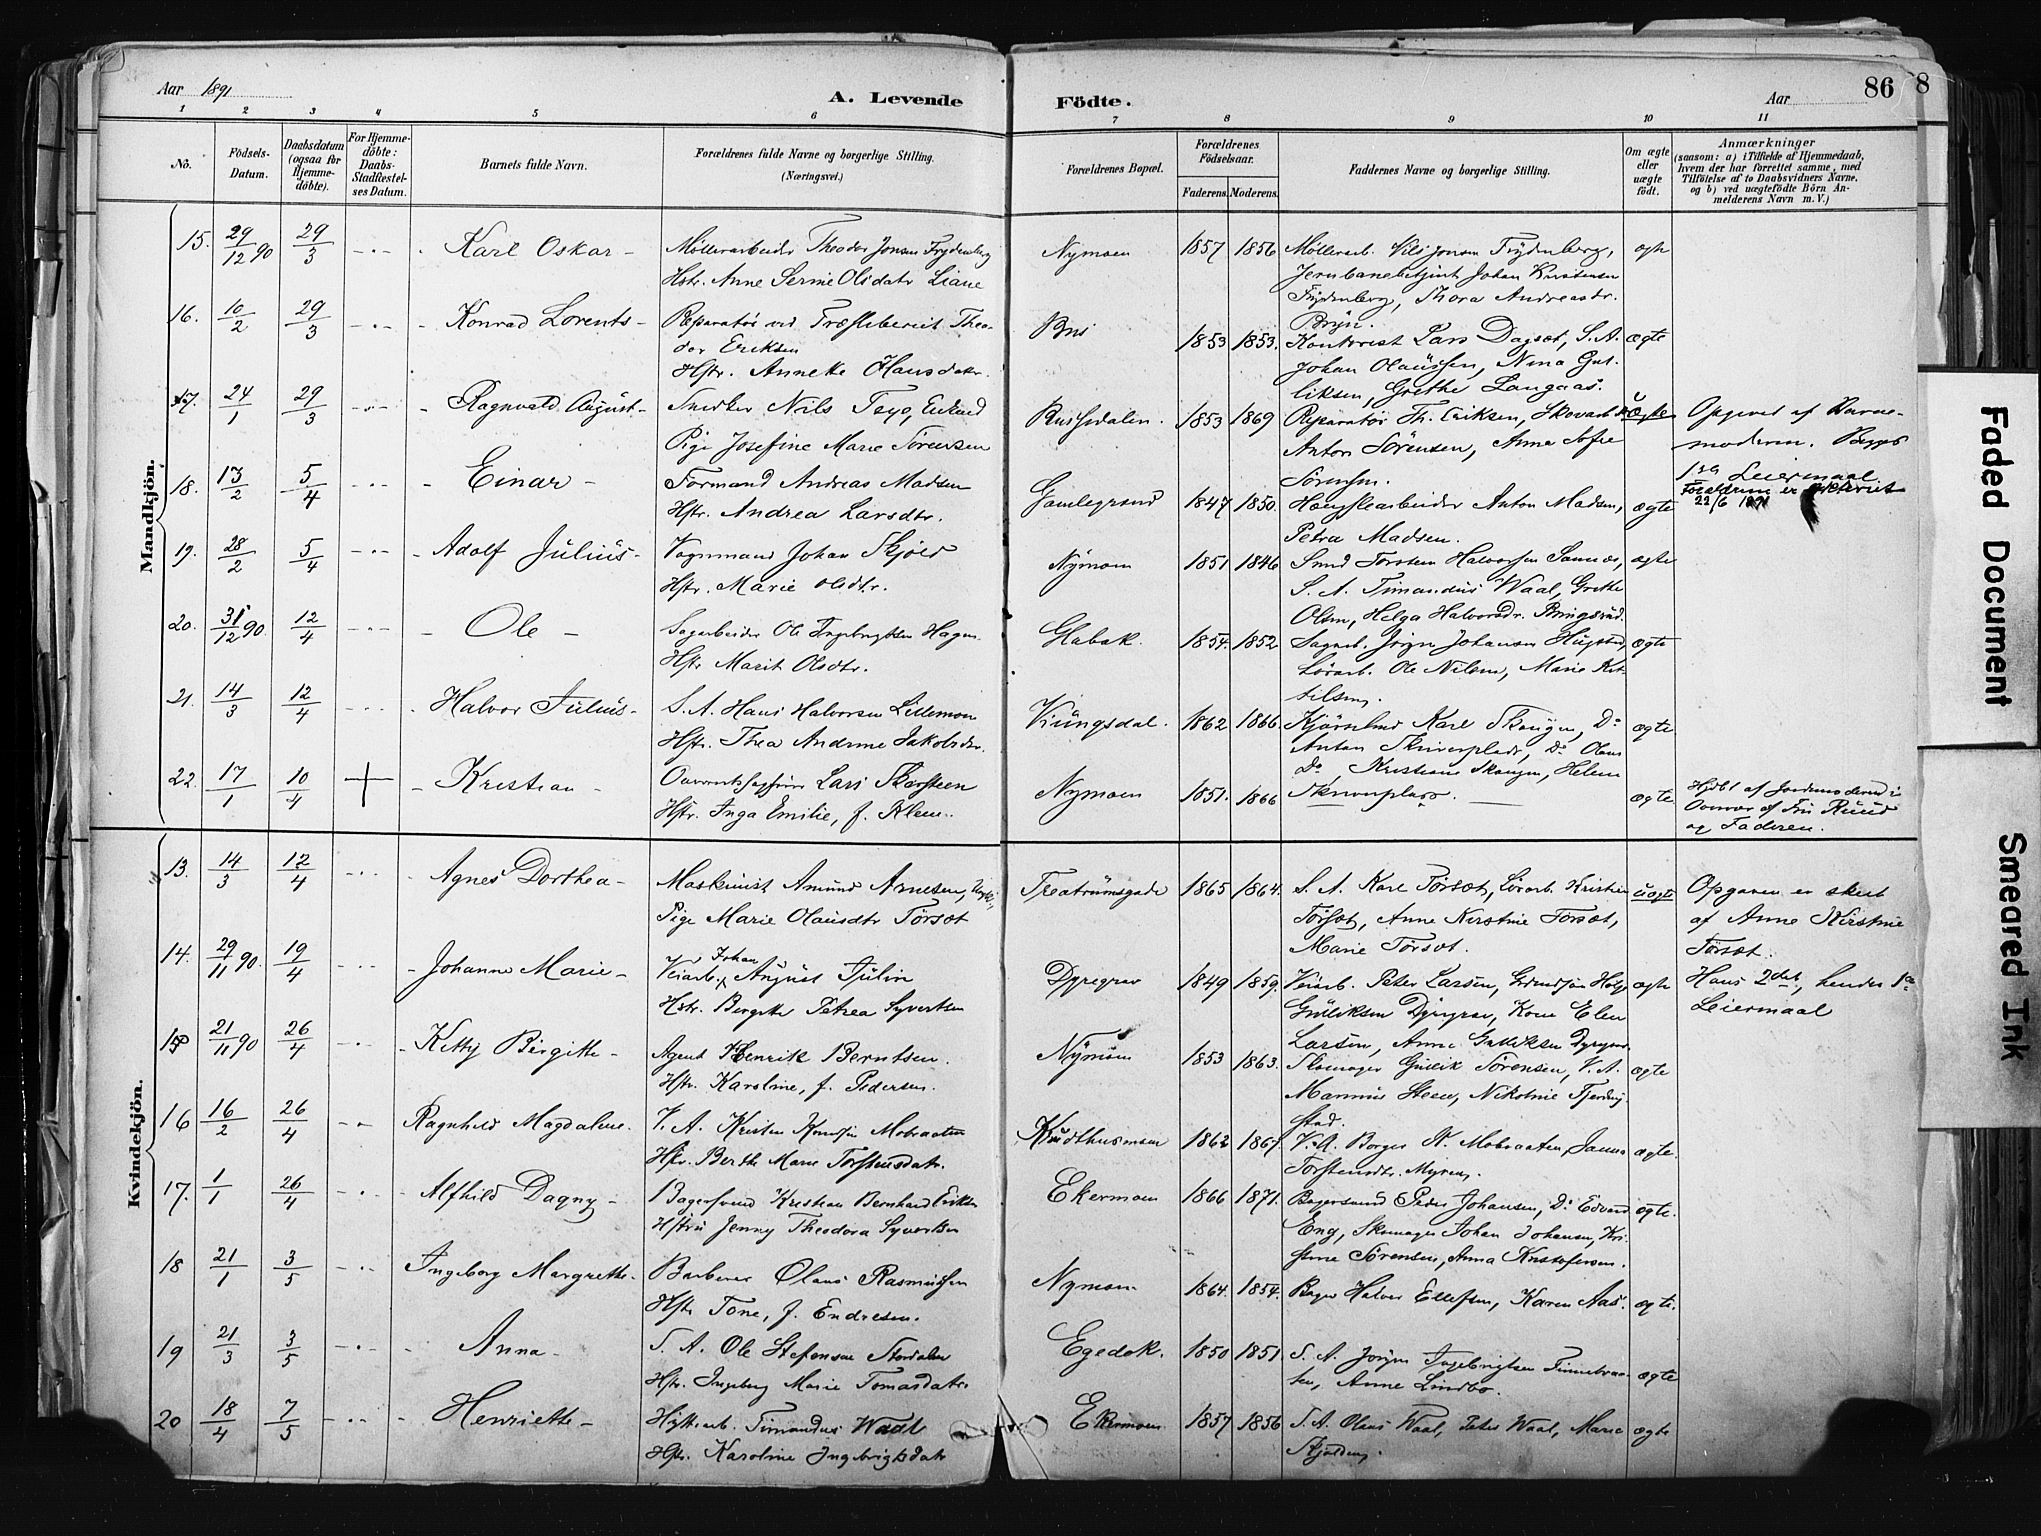 Aar 1891
A. Levende Födte.
Aar
86
8
1 2 3 4 5 6 7 8 9 10 11
No.
Födsels-Datum.
Daabsdatum (ogsaa for Hjemmedöbte).
For Hjemmedöbte: Daabs-Stadfæstelses Datum.
Barnets fulde Navn.
Forældrenes fulde Navne og borgerlige Stilling.
(Næringsvei.)
Forældrenes Bopæl.
Forældrenes Födselsaar.
Faderens. Moderens.
Faddernes Navne og borgerlige Stilling.
Om ægte eller uægte födt.
Anmærkninger
(saasom: a) i Tilfælde af Hjemmedaab, hvem der har forrettet samme, med Tilföielse af to Daabsvidners Navne, og b) ved uægtefödte Börn Anmelderens Navn m. V.)
Mandkjön.
15. 29/12 90 29/3 Karl Oskar - Møllerarbeider Theodor Jonsen Frydenberg Nymoen 1857 1856 Møllerarb. Nils Jonsen Frydenberg, ægte
Hstr. Anne Serine Olsdatr Liane Jernbanebetjent Johan Kristensen
Frydenberg, Thora Andreasdr.
Bryn.
16. 10/2 29/3 Konrad Lorents - Reparatør ved Træsliberiet Theo- 1853 1853. Kontorist Lars Dagsæt, S. A. ægte
dor Eriksen Johan Olaussen, Nina Gul-
Hstr. Anneke Hansdatr. liksen, Grethe Langaas.
17. 24/1 29/3 Ragnvald August - Snedker Nils 1853 1869 Reparatør Th. Eriksen, uægte Opgivet af Barne-
Pige Josefine Marie Sørensen Anton Sørensen, Anna Sofie moderen.
Sørensen. Leiermaal
18. 13/2 5/4 Einar - Formand Andreas Madsen Gamlegrend 1847 1850. Anton Madsen, ægte 22/6 1891
Hstr. Andrea Larsdtr. Petra Madsen.
19. 28/2 5/4 Adolf Julius - Vognmand Johan Skjold Nymoen 1851 1846 Smed Torsten Halvorsen ægte
Hstr. Marie Olsdtr. S. A. Timandus Waal, Grethe
Olsen, Helga Halvorsdr. Ringsrud.
20. 31/12 90. 12/4 Ole - Sagarbeider Ole Ingebrigtsen Hagen Glabak. 1854. 1852 Sagarb. Jørgen Johansen ægte
Hstr Marit Olsdtr. Ole Nilsen, Marie Ket-
tilsen.
21. 14/3 12/4 Halvor Julius - S. A. Hans Halvorsen Lillemoen 1862 1866. Karl Skougen, Do ægte
Hstr. Thea Andrine Jakobsdr. Anton Skriverplads, Do Olaus
Do, Kristiane Skougen, Helene
22. 17/1 10/4 Kristian - Lars Skarsteen Nymoen 1851. 1866 Skriverplads. ægte Hjdbt af Jordmoderen i
Hstr. Inga Emilie, f. Klem. Overvær af Fru Ruud
og Faderen.
Kvindekjön.
13. 14/3 12/4 Agnes Dorthea - Maskinist Amund Arnesen, Treatrumsgade 1865 1864. S. A. Karl Törsæt, Kristian uægte Opgaven er skeet
Pige Marie Olausdtr Törsæt Törsæt, Anne Kirstine Torsæt, af Anne Kirstine
Marie Törsæt. Törsæt.
14. 29/11 90. 19/4 Johanne Marie - Veiarb. Johan August Julin Dyregrav 1849 1859. Veiarb. Peter Larsen, ægte Hans 2det, hendes 1ste
Hstr. Bergitte Petrea Syvertsen Gulliksen Dyregrav, Kone Elen Leiermaal
Larsen, Anne Gulliksen Dyregrav.
15 21/11 90 26/4 Kitty Birgitte - Agent Henrik Berntsen. Nymoen 1853 1863. Skomager Gullik Sörensen, V. A. ægte
Hstr. Karoline, f. Pedersen. Marinius Steen, Nikoline Fjerding-
stad.
16 16/2 26/4 Ragnhild Magdalene. V. A. Kristen Mobraaten Krudthusmoen 1862 1867. V. A. Borger K. Mobraaten, ægte.
Hstr. Berthe Marie Torstensdatr. Torstensdtr. Myren.
17. 1/1 26/4 Alfhild Dagny - Bagersvend Kristian Bernhard Eriksen Ekermoen 1866 1871. Bagersvend Peder Johansen, Do Edvard ægte.
Hstru Jenny Theodora Syvertsen Eng, Skomager Johan Johansen, Kri-
stine Sörensen, Anna Kristofersen.
18 21/1 3/5 Ingeborg Margrethe. Barberer Olaus Rasmussen Nymoen 1864. 1854. Bager Halvor Ellefsen, Karen Aas. ægte.
Hstr Tone, f. Endresen.
19 21/3 3/5 Anna - S. A. Ole Stefensen Stordalen Egedok. 1850 1851. S. A. Jörgen Ingebrigtsen ægte
Hstr. Ingeborg Marie Tomasdatr. Anne Lindbo.
20 18/4 7/5 Henriette - Timandus Waal Ekermoen 1857 1856 S. A. Olaus Waal, Peter Waal, Marie ægte
Hstr. Karoline Ingebrigtsdatr Skjolden.
Faded Document
Smeared Ink